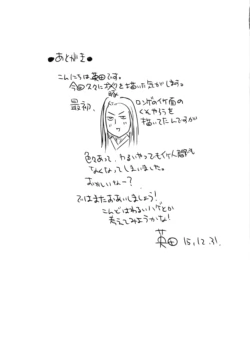 ●あとがき●
こんにちは英田です。
今回久々に を描いた気がします。
最初、
ロンゲのイケ面の
くそや行を
描いてたんですが
色々あって、わるいやつでもイケメンでも
なくなってしまいました。
おかしいなー？
ではまたおあいしましょう！
こんどはわるいハゲとか
考えてみようかな！
英田 15.12.31.